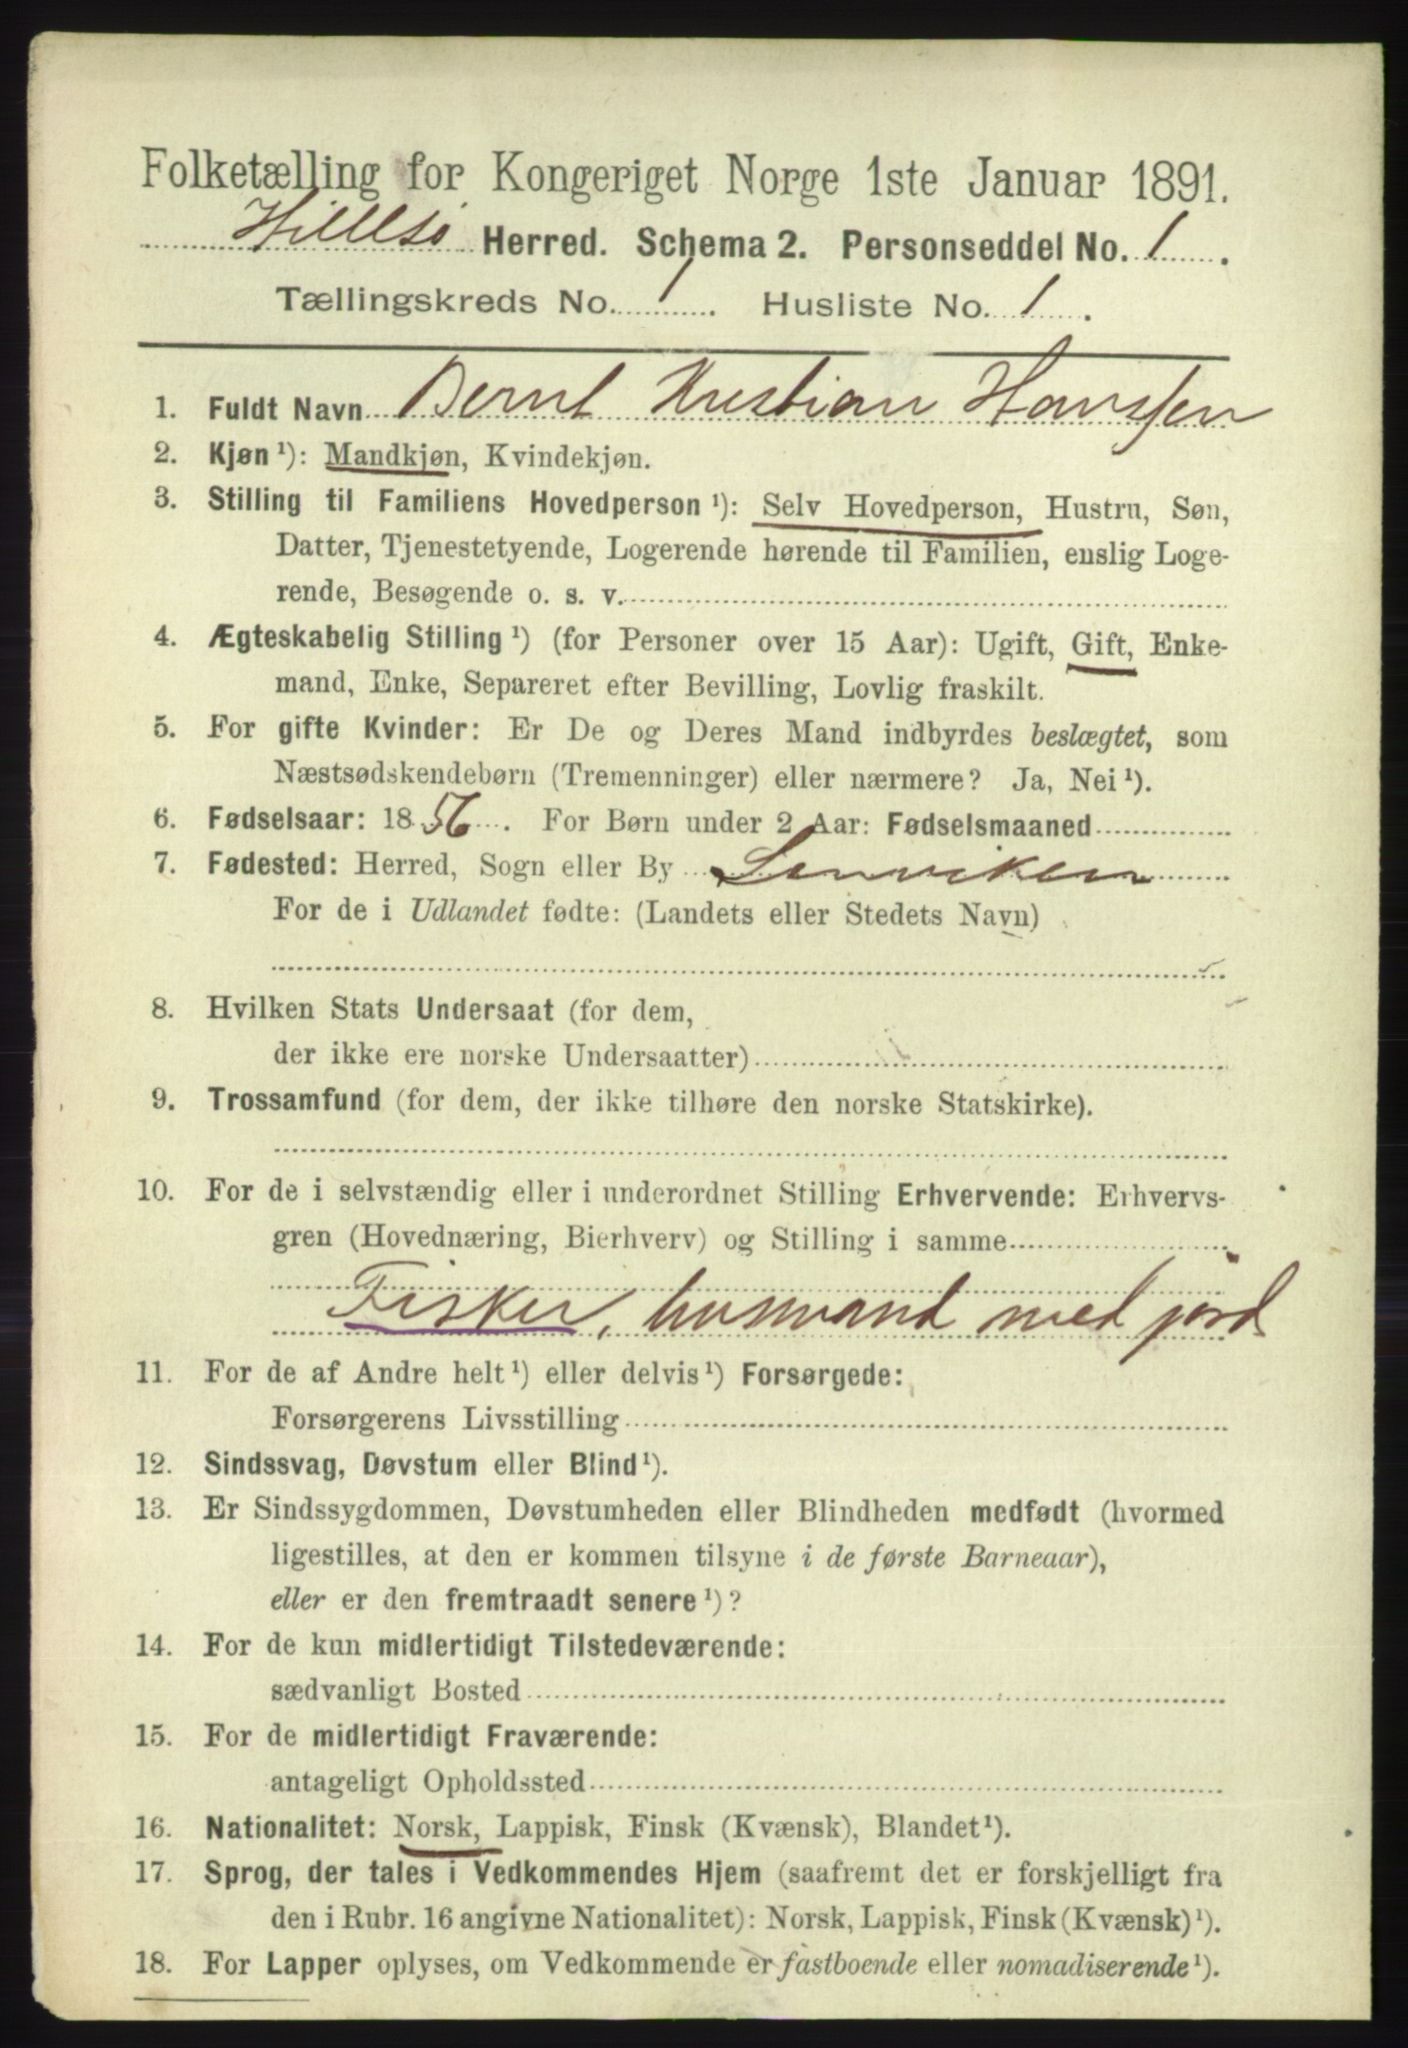 Folketælling for Kongeriget Norge 1ste Januar 1891.
Hillesø Herred. Schema 2. Personseddel No. 1.
Tællingskreds No. 1. Husliste No. 1.
1. Fuldt Navn Bernt Kristian Hanssen
2. Kjøn ¹): Mandkjøn, Kvindekjøn.
3. Stilling til Familiens Hovedperson ¹): Selv Hovedperson, Hustru, Søn,
Datter, Tjenestetyende, Logerende hørende til Familien, enslig Loge-
rende, Besøgende o. s. v.
4. Ægteskabelig Stilling ¹) (for Personer over 15 Aar): Ugift, Gift, Enke-
mand, Enke, Separeret efter Bevilling, Lovlig fraskilt.
5. For gifte Kvinder: Er De og Deres Mand indbyrdes beslægtet, som
Næstsødskendebørn (Tremenninger) eller nærmere? Ja, Nei ¹).
6. Fødselsaar: 1856. For Børn under 2 Aar: Fødselsmaaned
7. Fødested: Herred, Sogn eller By Lenviken
For de i Udlandet fødte: (Landets eller Stedets Navn)
8. Hvilken Stats Undersaat (for dem,
der ikke ere norske Undersaatter)
9. Trossamfund (for dem, der ikke tilhøre den norske Statskirke).
10. For de i selvstændig eller i underordnet Stilling Erhvervende: Erhvervs-
gren (Hovednæring, Bierhverv) og Stilling i samme
Fisker, husmand med jord
11. For de af Andre helt ¹) eller delvis ¹) Forsørgede:
Forsørgerens Livsstilling
12. Sindssvag, Døvstum eller Blind ¹).
13. Er Sindssygdommen, Døvstumheden eller Blindheden medfødt (hvormed
ligestilles, at den er kommen tilsyne i de første Barneaar),
eller er den fremtraadt senere ¹)?
14. For de kun midlertidigt Tilstedeværende:
sædvanligt Bosted
15. For de midlertidigt Fraværende:
antageligt Opholdssted
16. Nationalitet: Norsk, Lappisk, Finsk (Kvænsk), Blandet ¹).
17. Sprog, der tales i Vedkommendes Hjem (saafremt det er forskjelligt fra
den i Rubr. 16 angivne Nationalitet): Norsk, Lappisk, Finsk (Kvænsk) ¹).
18. For Lapper oplyses, om Vedkommende er fastboende eller nomadiserende ¹).